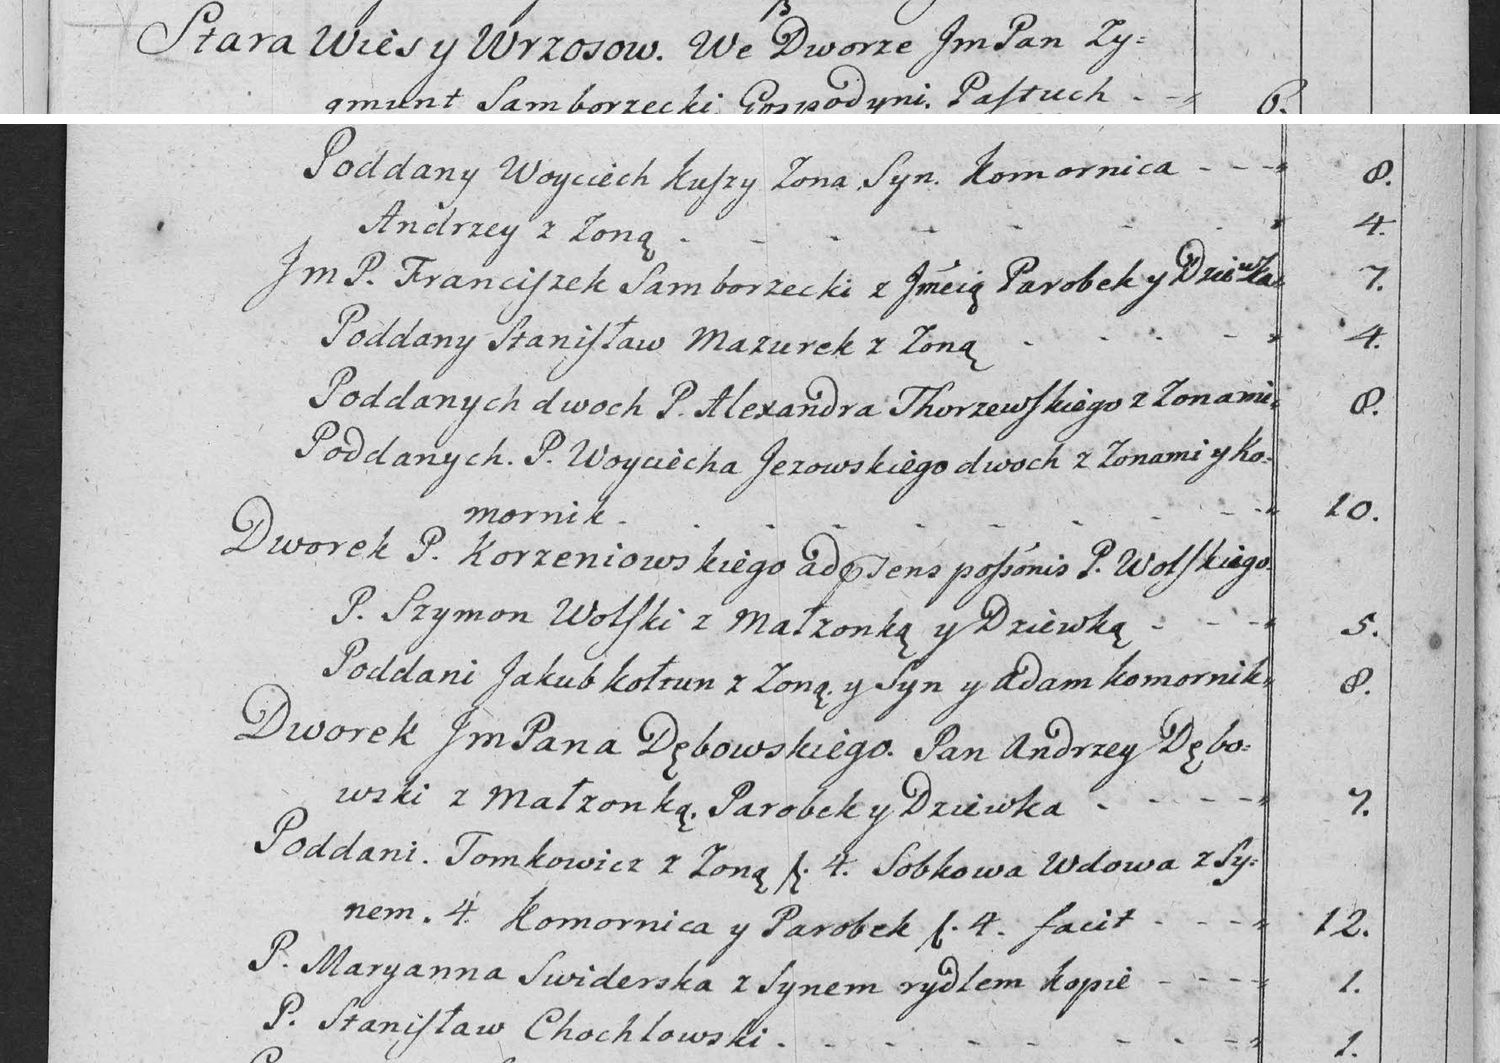 Stara Wies y Wrzosow. We Dworze Jm Pan Zy=
gmunt Samborzecki Gospodyni. Pastuch - - 6.
Poddany Woyciech Kuszy Zona Syn. Komornica - - - 8.
Andrzey z Zoną - - - - - - 4.
Jm P. Franciszek Samborzecki z Jmcią Parobek y Dziewka 7.
Poddany Stanisław Mazurek z Zoną - - - - 4.
Poddanych dwoch P. Alexandra Thorzewskiego z Zonami 8.
Poddanych. P. Woyciecha Jezowskiego dwoch z Zonami y Ko=
mornik - - - - - - - 10.
Dworek P. Korzeniowskiego possonis P. Wolskiego.
P. Szymon Wolski z Małzonką y Dziewką - - - 5.
Poddani Jakub Kołtun z Zoną. y Syn y Adam komornik 8.
Dworek Jm Pana Dębowskiego. Pan Andrzey Dębo=
wski z Małzonką. Parobek y Dziewka - - - - 7.
Poddani. Tomkowicz z Zoną f. 4. Sobkowa Wdowa z Sy=
nem. 4. Komornica y Parobek f. 4. facit - - - 12.
P. Maryanna Swiderska z Synem rydlem kopie - - - 1.
P. Stanisław Chochlowski. - - - - - 1.